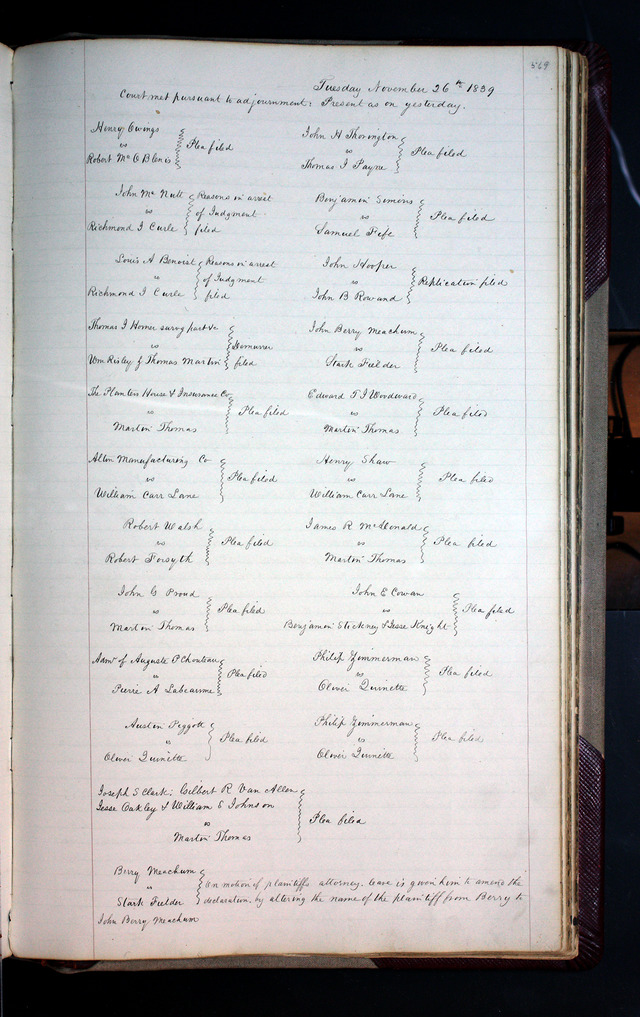 569
Tuesday November 26th 1839
Court met pursuant to adjournment: Present as on yesterday.
Henry Owings
vs
Robert Mc O Blenis
Plea filed
John H Thorington
vs
Thomas J Payne
Plea filed
John Mc Nutt
vs
Richmond J Curle
Reasons in arrest
of Judgment
filed
Benjamin Simons
vs
Samuel Fife
Plea filed
Louis A Benoist
vs
Richmond J Curle
Reasons in arrest
of Judgment
filed
John Hooper
vs
John B Rowand
Replication filed
Thomas J Horner survg partnr
vs
Wm Risley & Thomas Martin
Demurrer
filed
John Berry Meachum
vs
Stark Fielder
Plea filed
The Planters House & Insurance Co
vs
Martin Thomas
Plea filed
Edward T J Woodward
vs
Martin Thomas
Plea filed
Alton Manufacturing Co
vs
William Carr Lane
Plea filed
Henry Shaw
vs
William Carr Lane
Plea filed
Robert Walsh
vs
Robert Forsyth
Plea filed
James R McDonald
vs
Martin Thomas
Plea filed
John C Proud
vs
Martin Thomas
Plea filed
John E Cowan
vs
Benjamin Stickney & Jesse Knight
Plea filed
Admr of Auguste P Chouteau
vs
Pierre A Labeaume
Plea filed
Philip Zimmerman
vs
Oliver Quinette
Plea filed
Austin Piggott
vs
Oliver Quinette
Plea filed
Philip Zimmerman
vs
Oliver Quinette
Plea filed
Joseph S Clark; Gilbert R Van Allen
Jesse Oakley & William E Johnson
vs
Martin Thomas
Plea filed
Berry Meachum
vs
Stark Fielder
On motion of plaintiffs attorney, leave is given him to amend the
declaration, by altering the name of the plaintiff from Berry to
John Berry Meachum